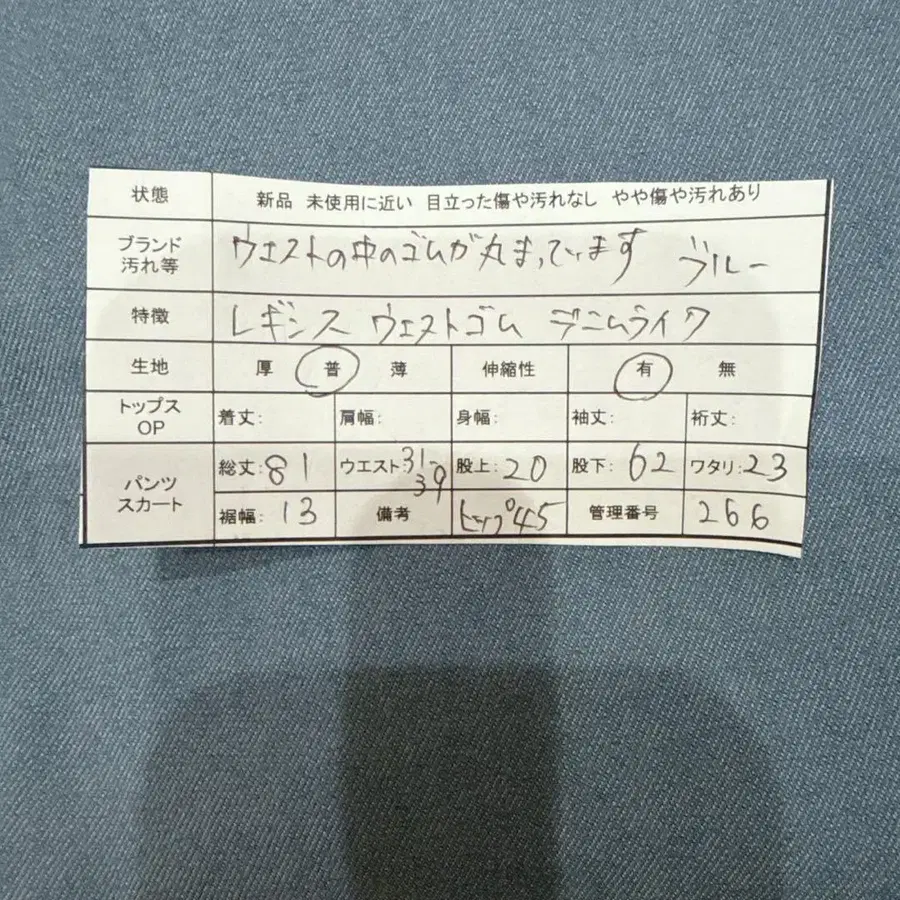 状態 新品 未使用に近い 目立った傷や汚れなし やや傷や汚れあり
ブランド 汚れ等 ウエストの中のゴムが丸まっています ブルー
特徴 レギンス ウエストゴム デニムライク
生地 厚 普 薄 伸縮性 有 無
トップス OP 着丈: 肩幅: 身幅: 袖丈: 裄丈:
パンツ スカート 総丈:81 ウエスト:31-39 股上:20 股下:62 ワタリ:23
裾幅:13 備考 ヒップ45 管理番号 266